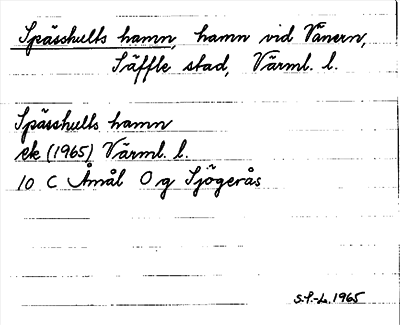 Spässhults hamn, hamn vid Vänern,
Säffle stad, Värml. l.
Spässhults hamn
ek (1965) Värml. l.
10 C Åmål O g Sjögerås
S.P.-L. 1965